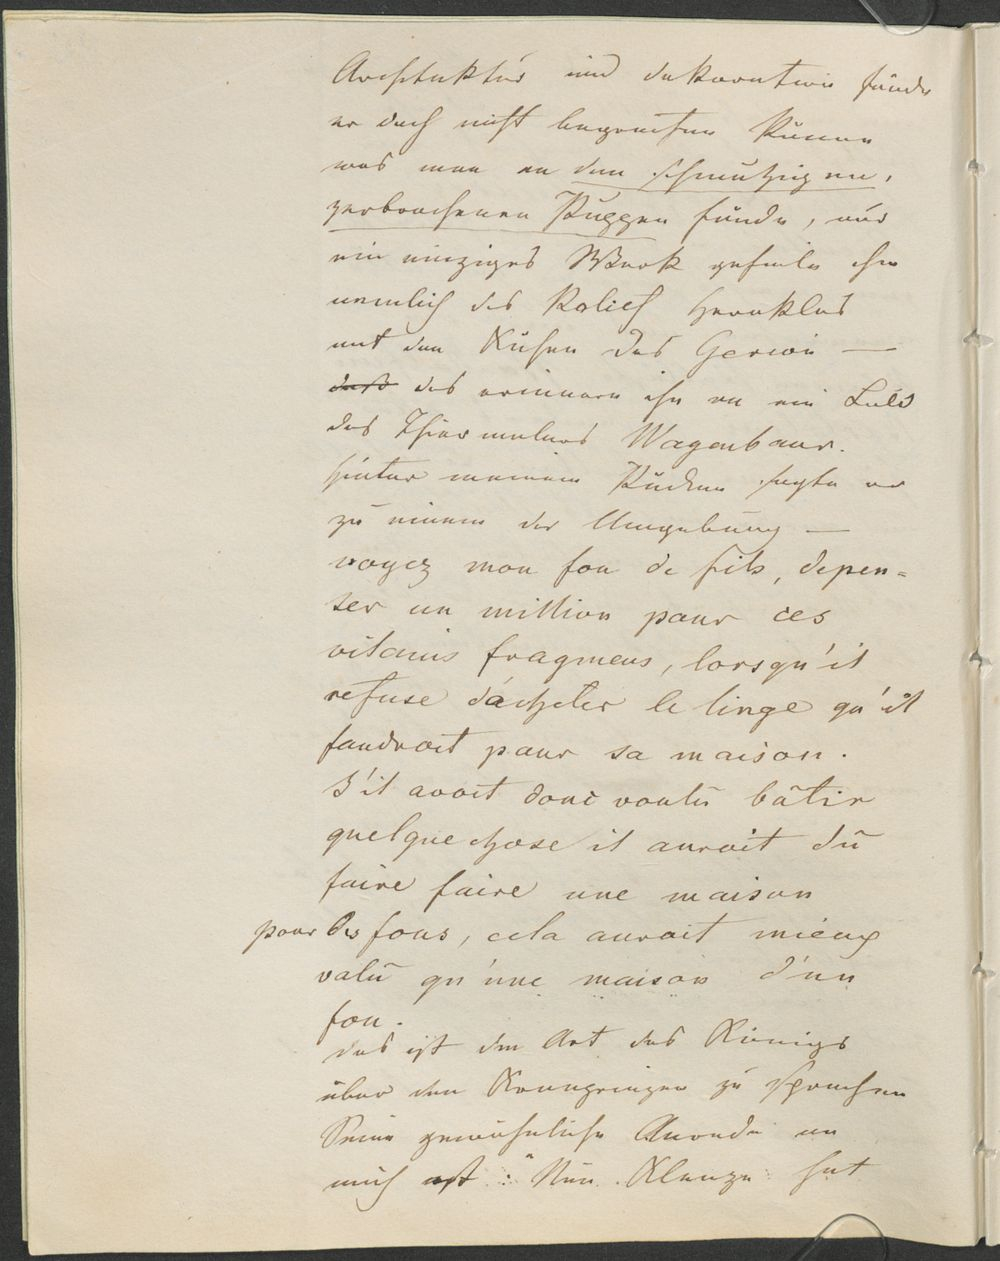 Architektur und dekoration fände
er doch nicht begreifen können
was man an den schmutzigen,
zerbrochenen Puppen fände, nur
ein einziges Werk gefiele ihm
nemlich das Relief Herakles
mit den Kühen des Gerion —
daß das erinnere ihn an ein Bild
des Thiermalers Wagenbaur.
hinter meinem Rücken sagte er
zu einem der Umgebung —
voyez mon fou de fils, depen=
ser un million pour ces
vilains fragmens, lorsqu'il
refuse d'acheter le linge qu'il
faudroit pour sa maison.
S'il avoit donc voulu bâtir
quelque chose il auroit dû
faire faire une maison
pour des fous, cela auroit mieux
valu qu'une maison d'un
fou.
das ist die Art des Königs
über den Kronprinzen zu sprechen
Seine gewöhnliche Anrede an
mich ist: "Nun Klenze hat